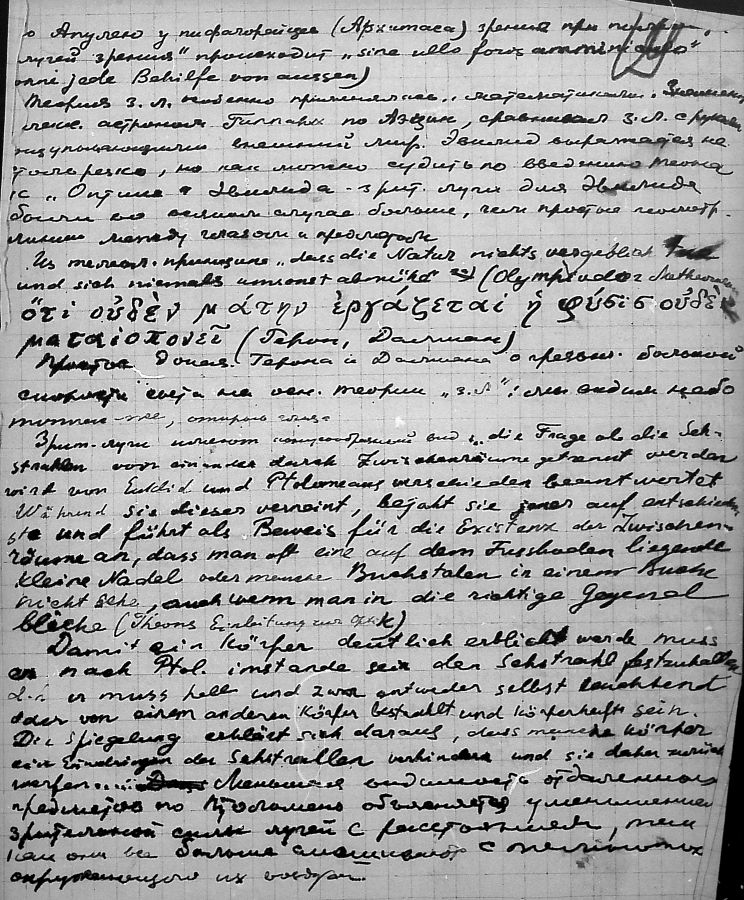 о Апулею у пифагорейцев (Архитаса) зрение при
лучей зрения" происходит „sine ullo foris amminiculo"
ohne jede Behilfe von aussen)
Теория з. л. особенно применялась математиками.
астроном Гиппарх по Аэцию, сравнивал з. л. с руками
ощупывающими внешний мир. Эвклид выражается не
резко, но как можно судить по введению Теона
к „Оптике" Эвклида - зрит. лучи для Эвклида
были во всяком случае больше, чем простые геометр.
линии между глазом и предметом
Из телеол. принципа „dass die Natur nichts vergeblich
und sich niemals umsonst abmühe" (Olympiodor
ὅτι οὐδὲν μάτην ἐργάζεται ἡ φύσις οὐδὲ
ματαιοπονεῖ (Герон, Дамиан)
Простое доказ. Герона и Дамиана о чрезвыч. большой
скорости света на осн. теории „з. л": мы видим небо
тотчас же, открыв глаза
Зрит. лучи имеют конусообразный вид „die Frage ob die Seh-
strahlen voneinander durch Zwischenräume getrennt werden
wird von Euklid und Ptolomeaus verschieden beantwortet
Während sie dieser verneint, bejaht sie jener auf entschieden-
ste und führt als Beweis für die Existenz der Zwischen-
räume an, dass man oft eine auf dem Fussboden liegende
kleine Nadel oder manche Buchstaben in einem Buche
nicht sehe, auch wenn man in die richtige Gegend
blicke (Theons Einleitung zur Optik)
Damit ein Körper deutlich erblickt werde muss
er nach Ptol. imstande sein den Sehstrahl festzuhalten
d.h er muss hell und zwar entweder selbst leuchtend
oder von einem anderen Körper bestrahlt und körperhaft sein.
Die Spiegelung erklärt sich daraus, dass manche Körper
ein Eindringen der Sehstrahlen verhindern und sie daher zurück
werfen..... Меньшая видимость отдаленного
предмета по Птоломею объясняется уменьшением
зрительной силы лучей с расстоянием, так
как они все больше смешивают с
окружающего их воздуха.